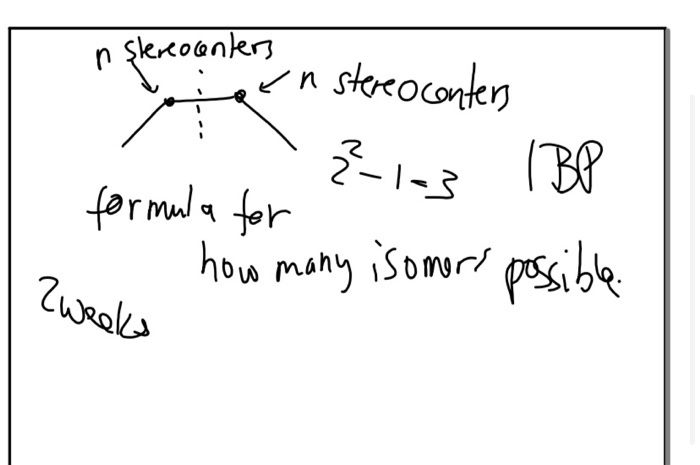 n stereocenters
n stereoconters
2² - 1 = 3
1 BP
formula for
how many isomers possible.
2 weeks